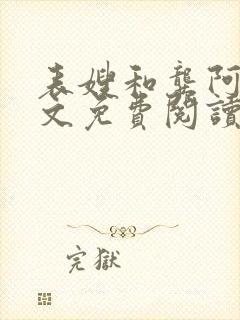 表嫂和龚阿
文免費閱讀
完獄